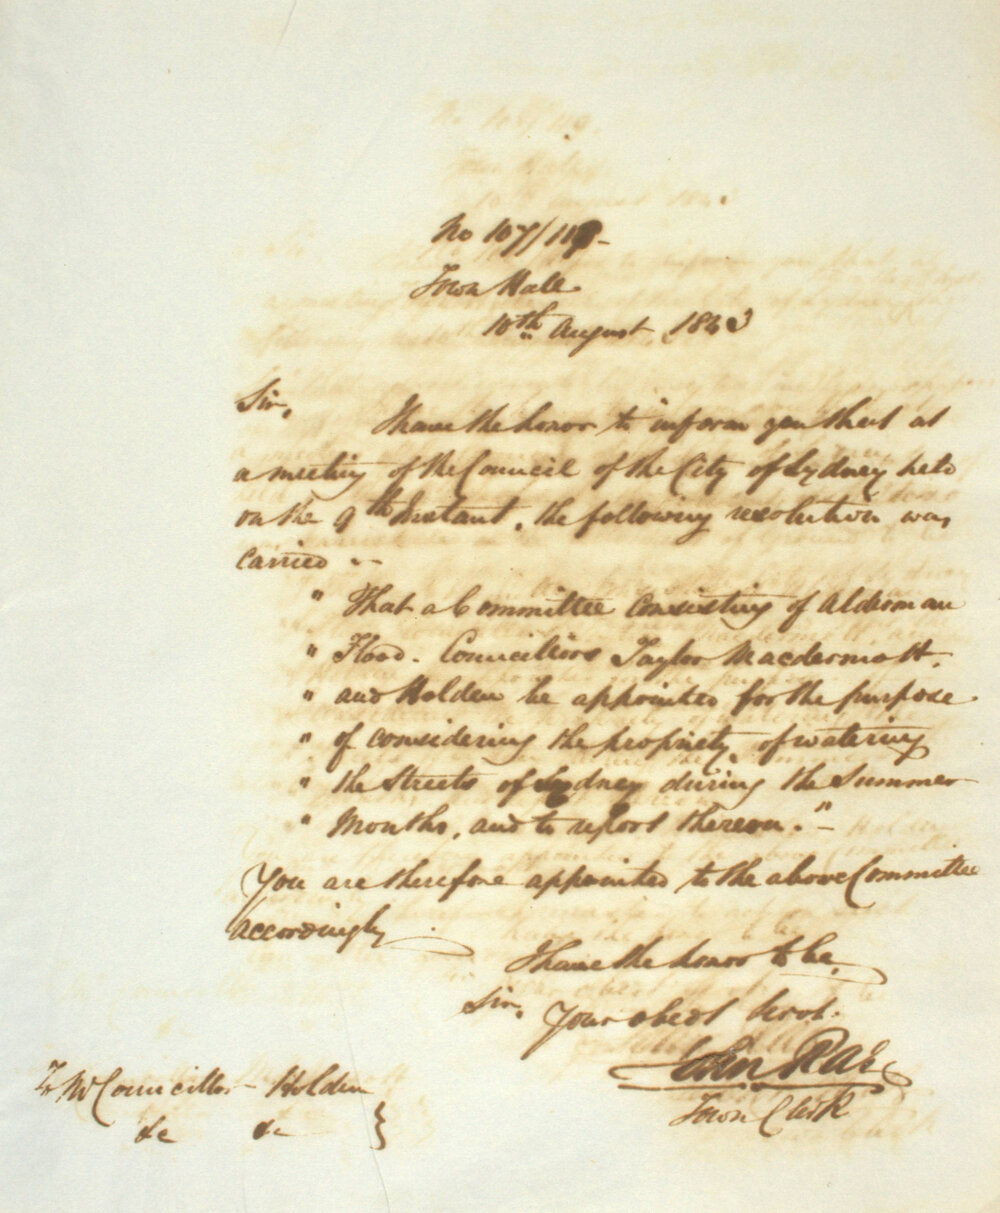 No 107/119-
Town Hall
10th August 1843
Sir,
I have the honor to inform you that at
a meeting of the Council of the City of Sydney held
on the 9th Instant, the following resolution was
carried --
" That a Committee consisting of Alderman
" Flood. Councillors Taylor Macdermott,
" and Holden be appointed for the purpose
" of considering the propriety of watering
" the Streets of Sydney during the Summer
" Months, and to report thereon."-
You are therefore appointed to the above Committee
accordingly
I have the honor to be,
Sir,
Your obedt Servt.
John Rae
Town Clerk
To Mr Councillor - Holden
&c &c }